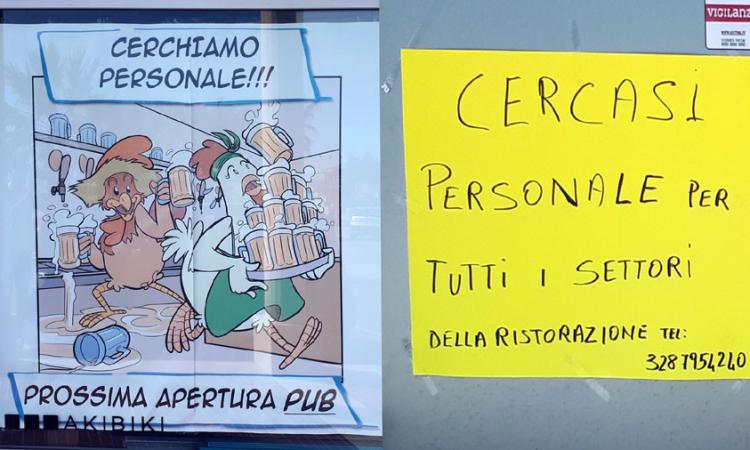 CERCHIAMO
PERSONALE!!!
PROSSIMA APERTURA PUB
AKIBIKI
VIGILANZ
CERCASI
PERSONALE PER
TUTTI I SETTORI
DELLA RISTORAZIONE TEL:
3287954240